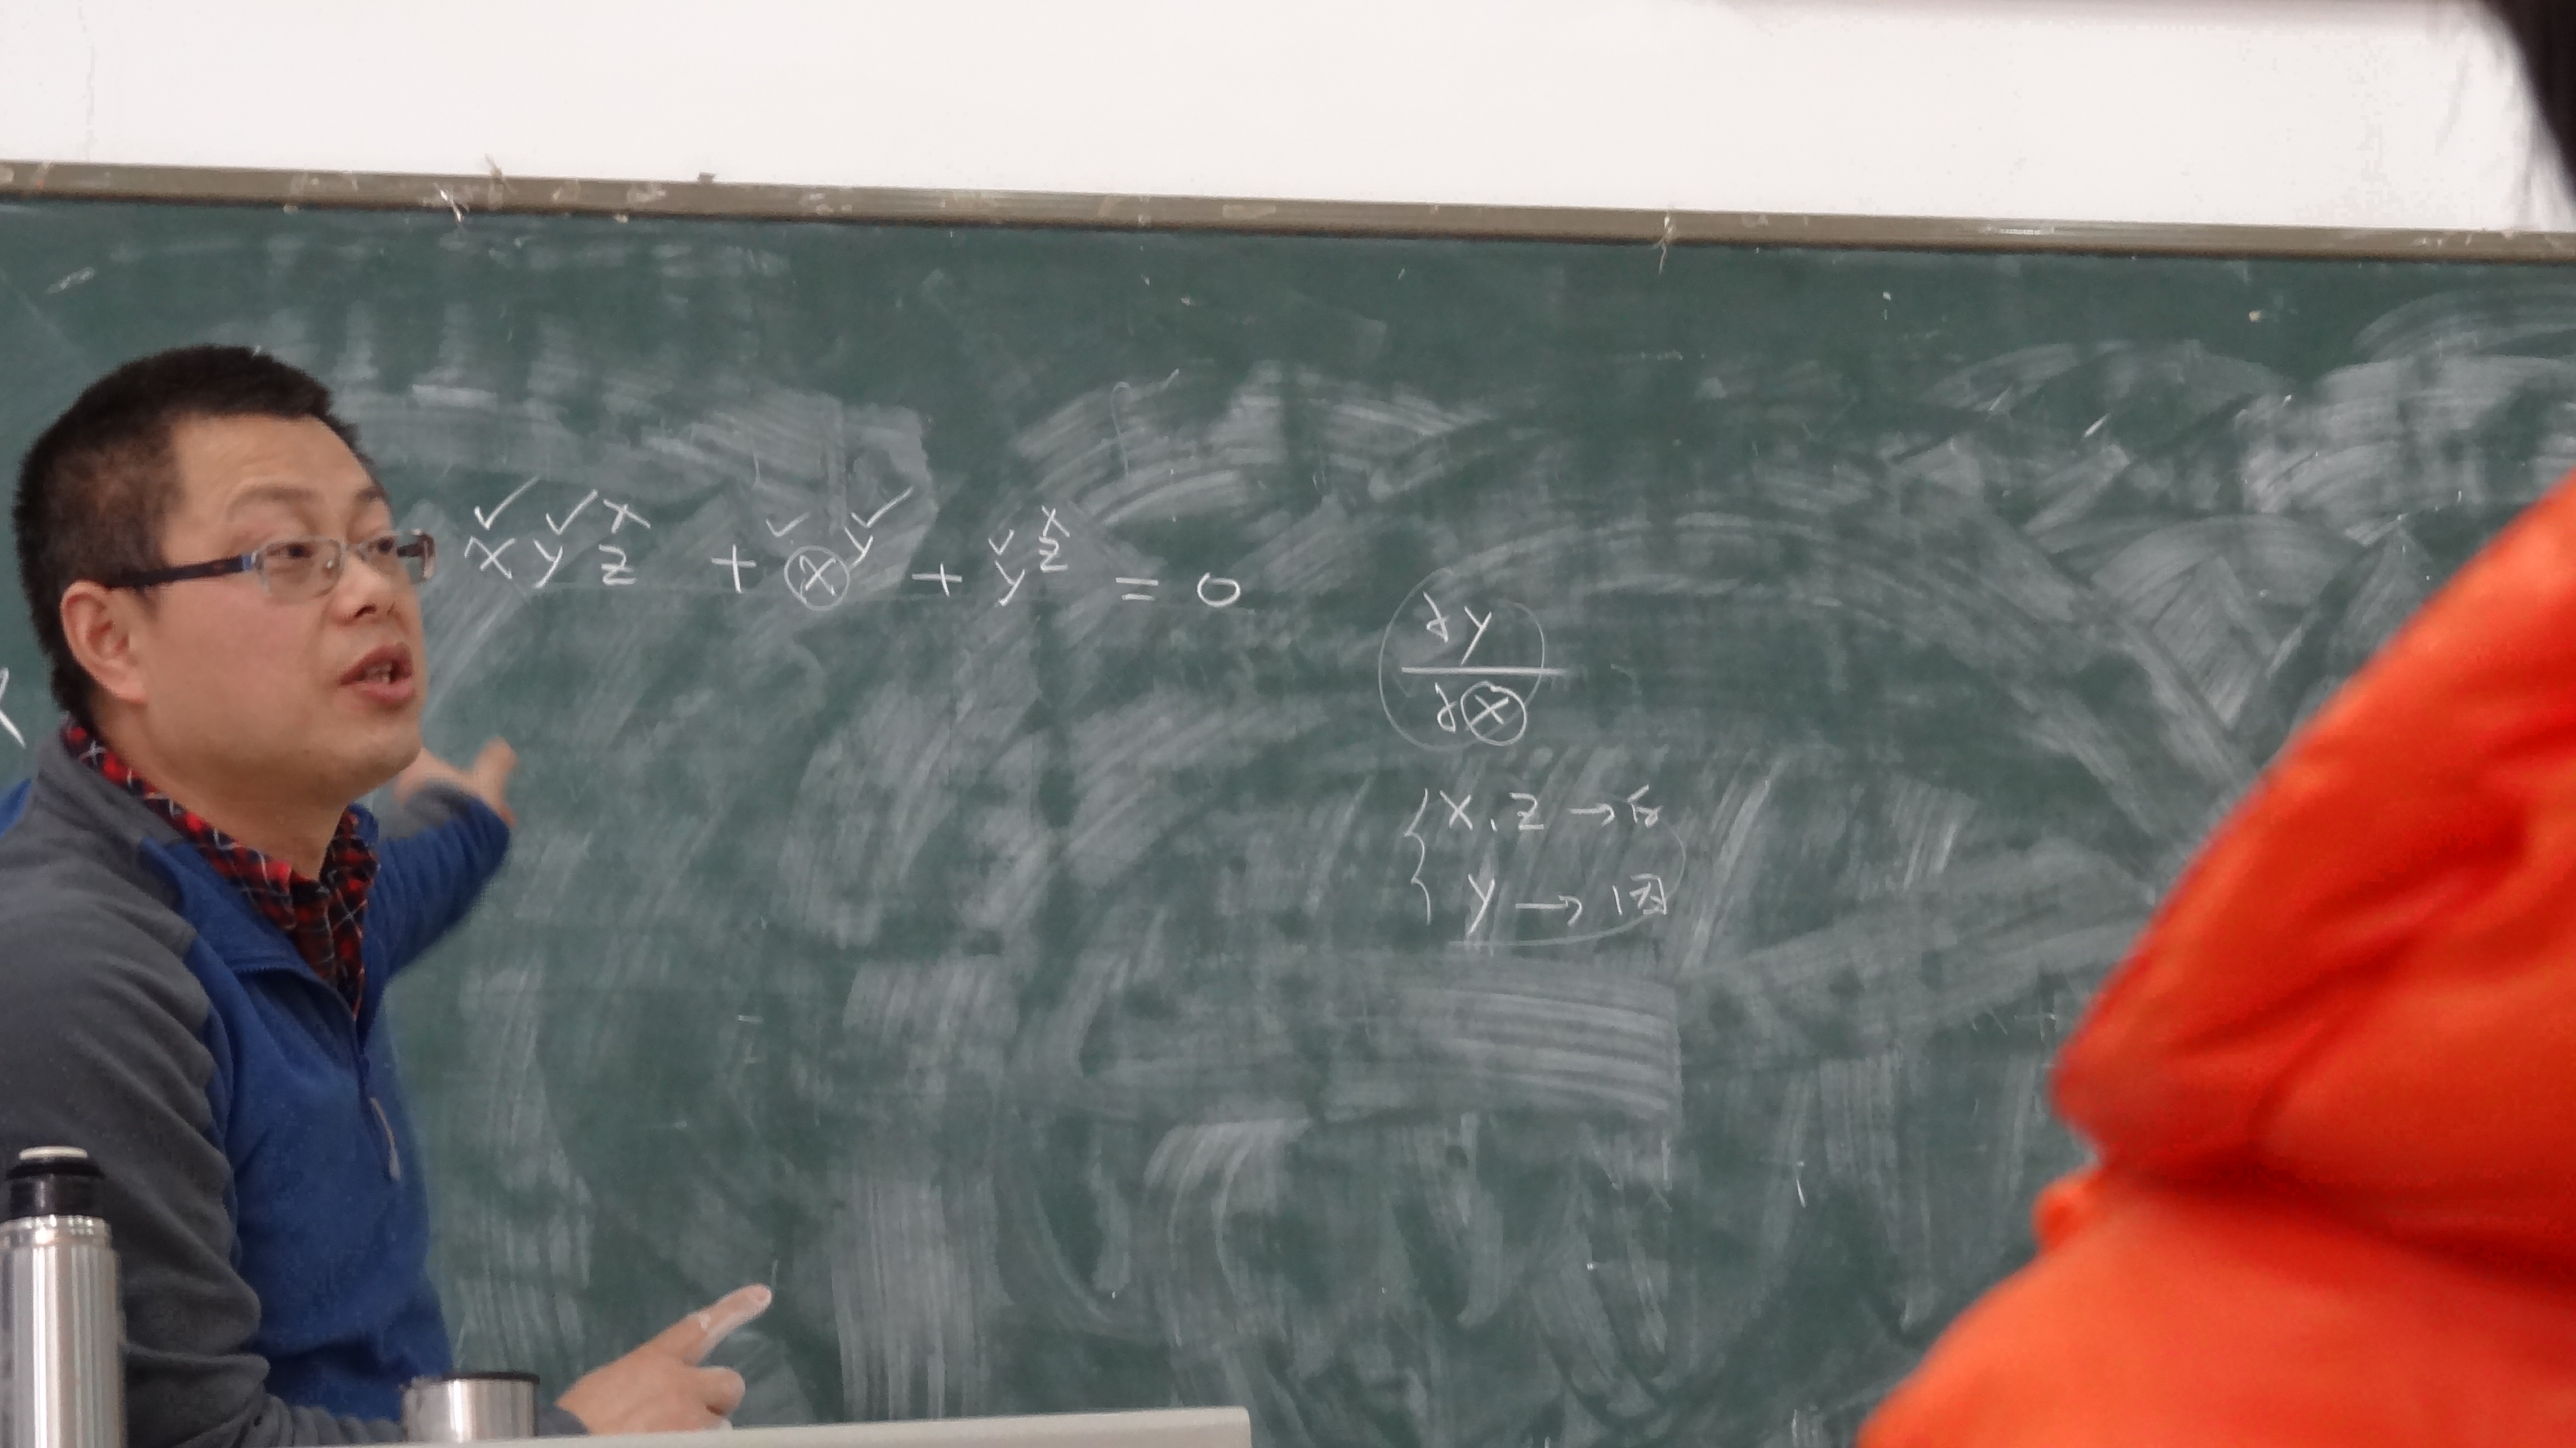 ✓ ✓ × ✓ ✓ ✓ ×
xyz + x^y + y^z = 0
∂y
∂x
{ x, z → 自
y → 因